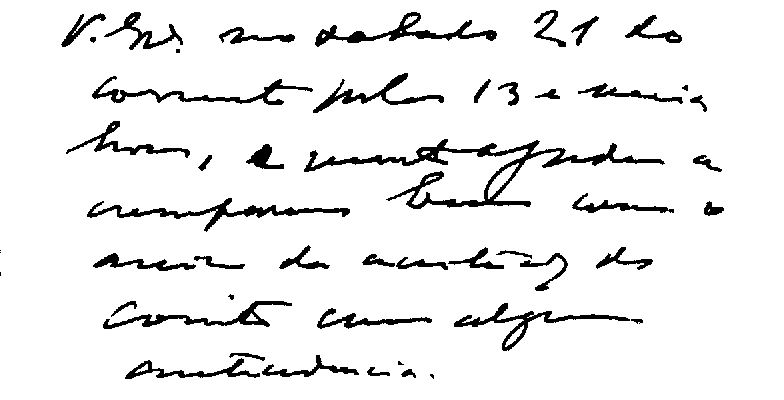 V. Exª. no sabado 21 do
corrente pelas 13 e meia
horas, e muito ajuda a
comparar bem como o
aviso da aceitação do
convite com alguma
antecedencia.